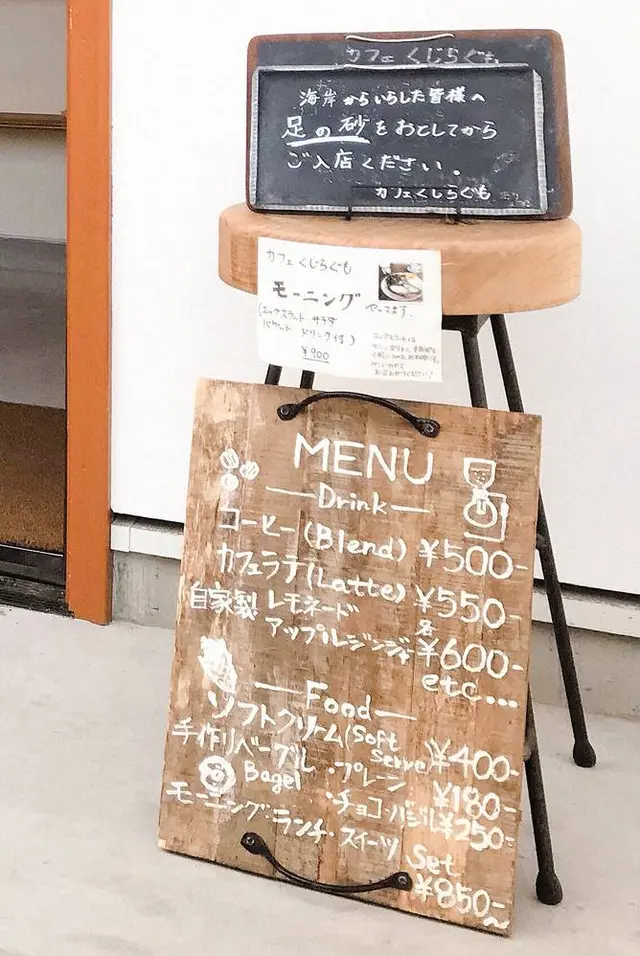 カフェ くじらぐも
海岸からいらした皆様へ
足の砂をおとしてから
ご入店ください。
カフェくじらぐも
カフェくじらぐも
モーニング やってます。
(エッグスラット サラダ
バケット ドリンク付)
¥900
エッグスラットは
お召し上がりください♪
MENU
Drink
コーヒー(Blend) ¥500-
カフェラテ(Latte) ¥550-
自家製 レモネード 各
アップルジンジャー ¥600-
etc...
Food
ソフトクリーム(Soft Serve) ¥400-
手作りベーグル・プレーン ¥180-
Bagel ・チョコ・バジル ¥250-
モーニング・ランチ・スイーツ Set
¥850-~